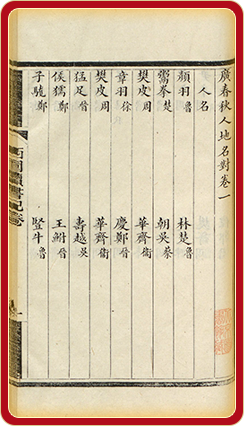 廣春秋人地名對卷一
人名
顏羽魯 林楚魯
鬻拳楚 朝吳蔡
樊皮周 華齊衛
章羽徐 慶鄭晉
樊皮周 華齊衛
猛足晉 壽越吳
侯獳鄭 王鮒晉
子 鄭 豎牛魯